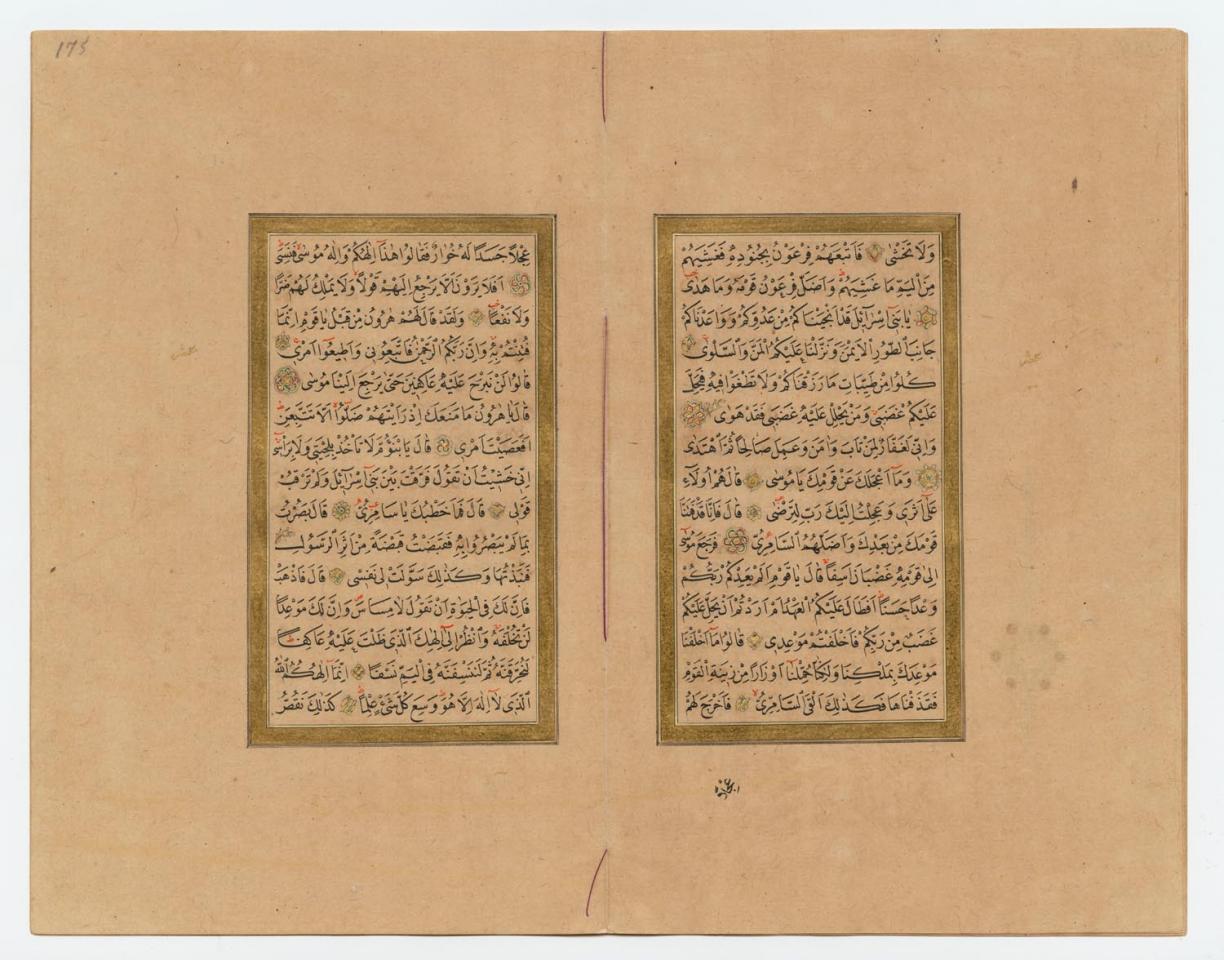 وَلَا تَخْشٰى فَاَتْبَعَهُمْ فِرْعَوْنُ بِجُنُودِهٖ فَغَشِيَهُمْ
مِنَ الْيَمِّ مَا غَشِيَهُمْ وَاَضَلَّ فِرْعَوْنُ قَوْمَهُ وَمَا هَدٰى
يَا بَنٖٓى اِسْرَآئٖلَ قَدْ اَنْجَيْنَاكُمْ مِنْ عَدُوِّكُمْ وَوَاعَدْنَاكُمْ
جَانِبَ الطُّورِ الْاَيْمَنَ وَنَزَّلْنَا عَلَيْكُمُ الْمَنَّ وَالسَّلْوٰى
كُلُوا مِنْ طَيِّبَاتِ مَا رَزَقْنَاكُمْ وَلَا تَطْغَوْا فٖيهِ فَيَحِلَّ
عَلَيْكُمْ غَضَبٖى وَمَنْ يَحْلِلْ عَلَيْهِ غَضَبٖى فَقَدْ هَوٰى
وَاِنّٖى لَغَفَّارٌ لِمَنْ تَابَ وَاٰمَنَ وَعَمِلَ صَالِحًا ثُمَّ اهْتَدٰى
وَمَآ اَعْجَلَكَ عَنْ قَوْمِكَ يَا مُوسٰى قَالَ هُمْ اُولَآءِ
عَلٰٓى اَثَرٖى وَعَجِلْتُ اِلَيْكَ رَبِّ لِتَرْضٰى قَالَ فَاِنَّا قَدْ فَتَنَّا
قَوْمَكَ مِنْ بَعْدِكَ وَاَضَلَّهُمُ السَّامِرِىُّ فَرَجَعَ مُوسٰٓى
اِلٰى قَوْمِهٖ غَضْبَانَ اَسِفًا قَالَ يَا قَوْمِ اَلَمْ يَعِدْكُمْ رَبُّكُمْ
وَعْدًا حَسَنًا اَفَطَالَ عَلَيْكُمُ الْعَهْدُ اَمْ اَرَدْتُمْ اَنْ يَحِلَّ عَلَيْكُمْ
غَضَبٌ مِنْ رَبِّكُمْ فَاَخْلَفْتُمْ مَوْعِدٖى قَالُوا مَآ اَخْلَفْنَا
مَوْعِدَكَ بِمَلْكِنَا وَلٰكِنَّا حُمِّلْنَآ اَوْزَارًا مِنْ زٖينَةِ الْقَوْمِ
فَقَذَفْنَاهَا فَكَذٰلِكَ اَلْقَى السَّامِرِىُّ فَاَخْرَجَ لَهُمْ
عجلا
عِجْلًا جَسَدًا لَهُ خُوَارٌ فَقَالُوا هٰذَآ اِلٰهُكُمْ وَاِلٰهُ مُوسٰى فَنَسِىَ
اَفَلَا يَرَوْنَ اَلَّا يَرْجِعُ اِلَيْهِمْ قَوْلًا وَلَا يَمْلِكُ لَهُمْ ضَرًّا
وَلَا نَفْعًا وَلَقَدْ قَالَ لَهُمْ هٰرُونُ مِنْ قَبْلُ يَا قَوْمِ اِنَّمَا
فُتِنْتُمْ بِهٖ وَاِنَّ رَبَّكُمُ الرَّحْمٰنُ فَاتَّبِعُونٖى وَاَطٖيعُٓوا اَمْرٖى
قَالُوا لَنْ نَبْرَحَ عَلَيْهِ عَاكِفٖينَ حَتّٰى يَرْجِعَ اِلَيْنَا مُوسٰى
قَالَ يَا هٰرُونُ مَا مَنَعَكَ اِذْ رَاَيْتَهُمْ ضَلُّٓوا اَلَّا تَتَّبِعَنِ
اَفَعَصَيْتَ اَمْرٖى قَالَ يَا بْنَؤُمَّ لَا تَاْخُذْ بِلِحْيَتٖى وَلَا بِرَاْسٖى
اِنّٖى خَشٖيتُ اَنْ تَقُولَ فَرَّقْتَ بَيْنَ بَنٖٓى اِسْرَآئٖلَ وَلَمْ تَرْقُبْ
قَوْلٖى قَالَ فَمَا خَطْبُكَ يَا سَامِرِىُّ قَالَ بَصُرْتُ
بِمَا لَمْ يَبْصُرُوا بِهٖ فَقَبَضْتُ قَبْضَةً مِنْ اَثَرِ الرَّسُولِ
فَنَبَذْتُهَا وَكَذٰلِكَ سَوَّلَتْ لٖى نَفْسٖى قَالَ فَاذْهَبْ
فَاِنَّ لَكَ فِى الْحَيٰوةِ اَنْ تَقُولَ لَا مِسَاسَ وَاِنَّ لَكَ مَوْعِدًا
لَنْ تُخْلَفَهُ وَانْظُرْ اِلٰٓى اِلٰهِكَ الَّذٖى ظَلْتَ عَلَيْهِ عَاكِفًا
لَنُحَرِّقَنَّهُ ثُمَّ لَنَنْسِفَنَّهُ فِى الْيَمِّ نَسْفًا اِنَّمَآ اِلٰهُكُمُ اللّٰهُ
الَّذٖى لَآ اِلٰهَ اِلَّا هُوَ وَسِعَ كُلَّ شَىْءٍ عِلْمًا كَذٰلِكَ نَقُصُّ
عشر
عشر